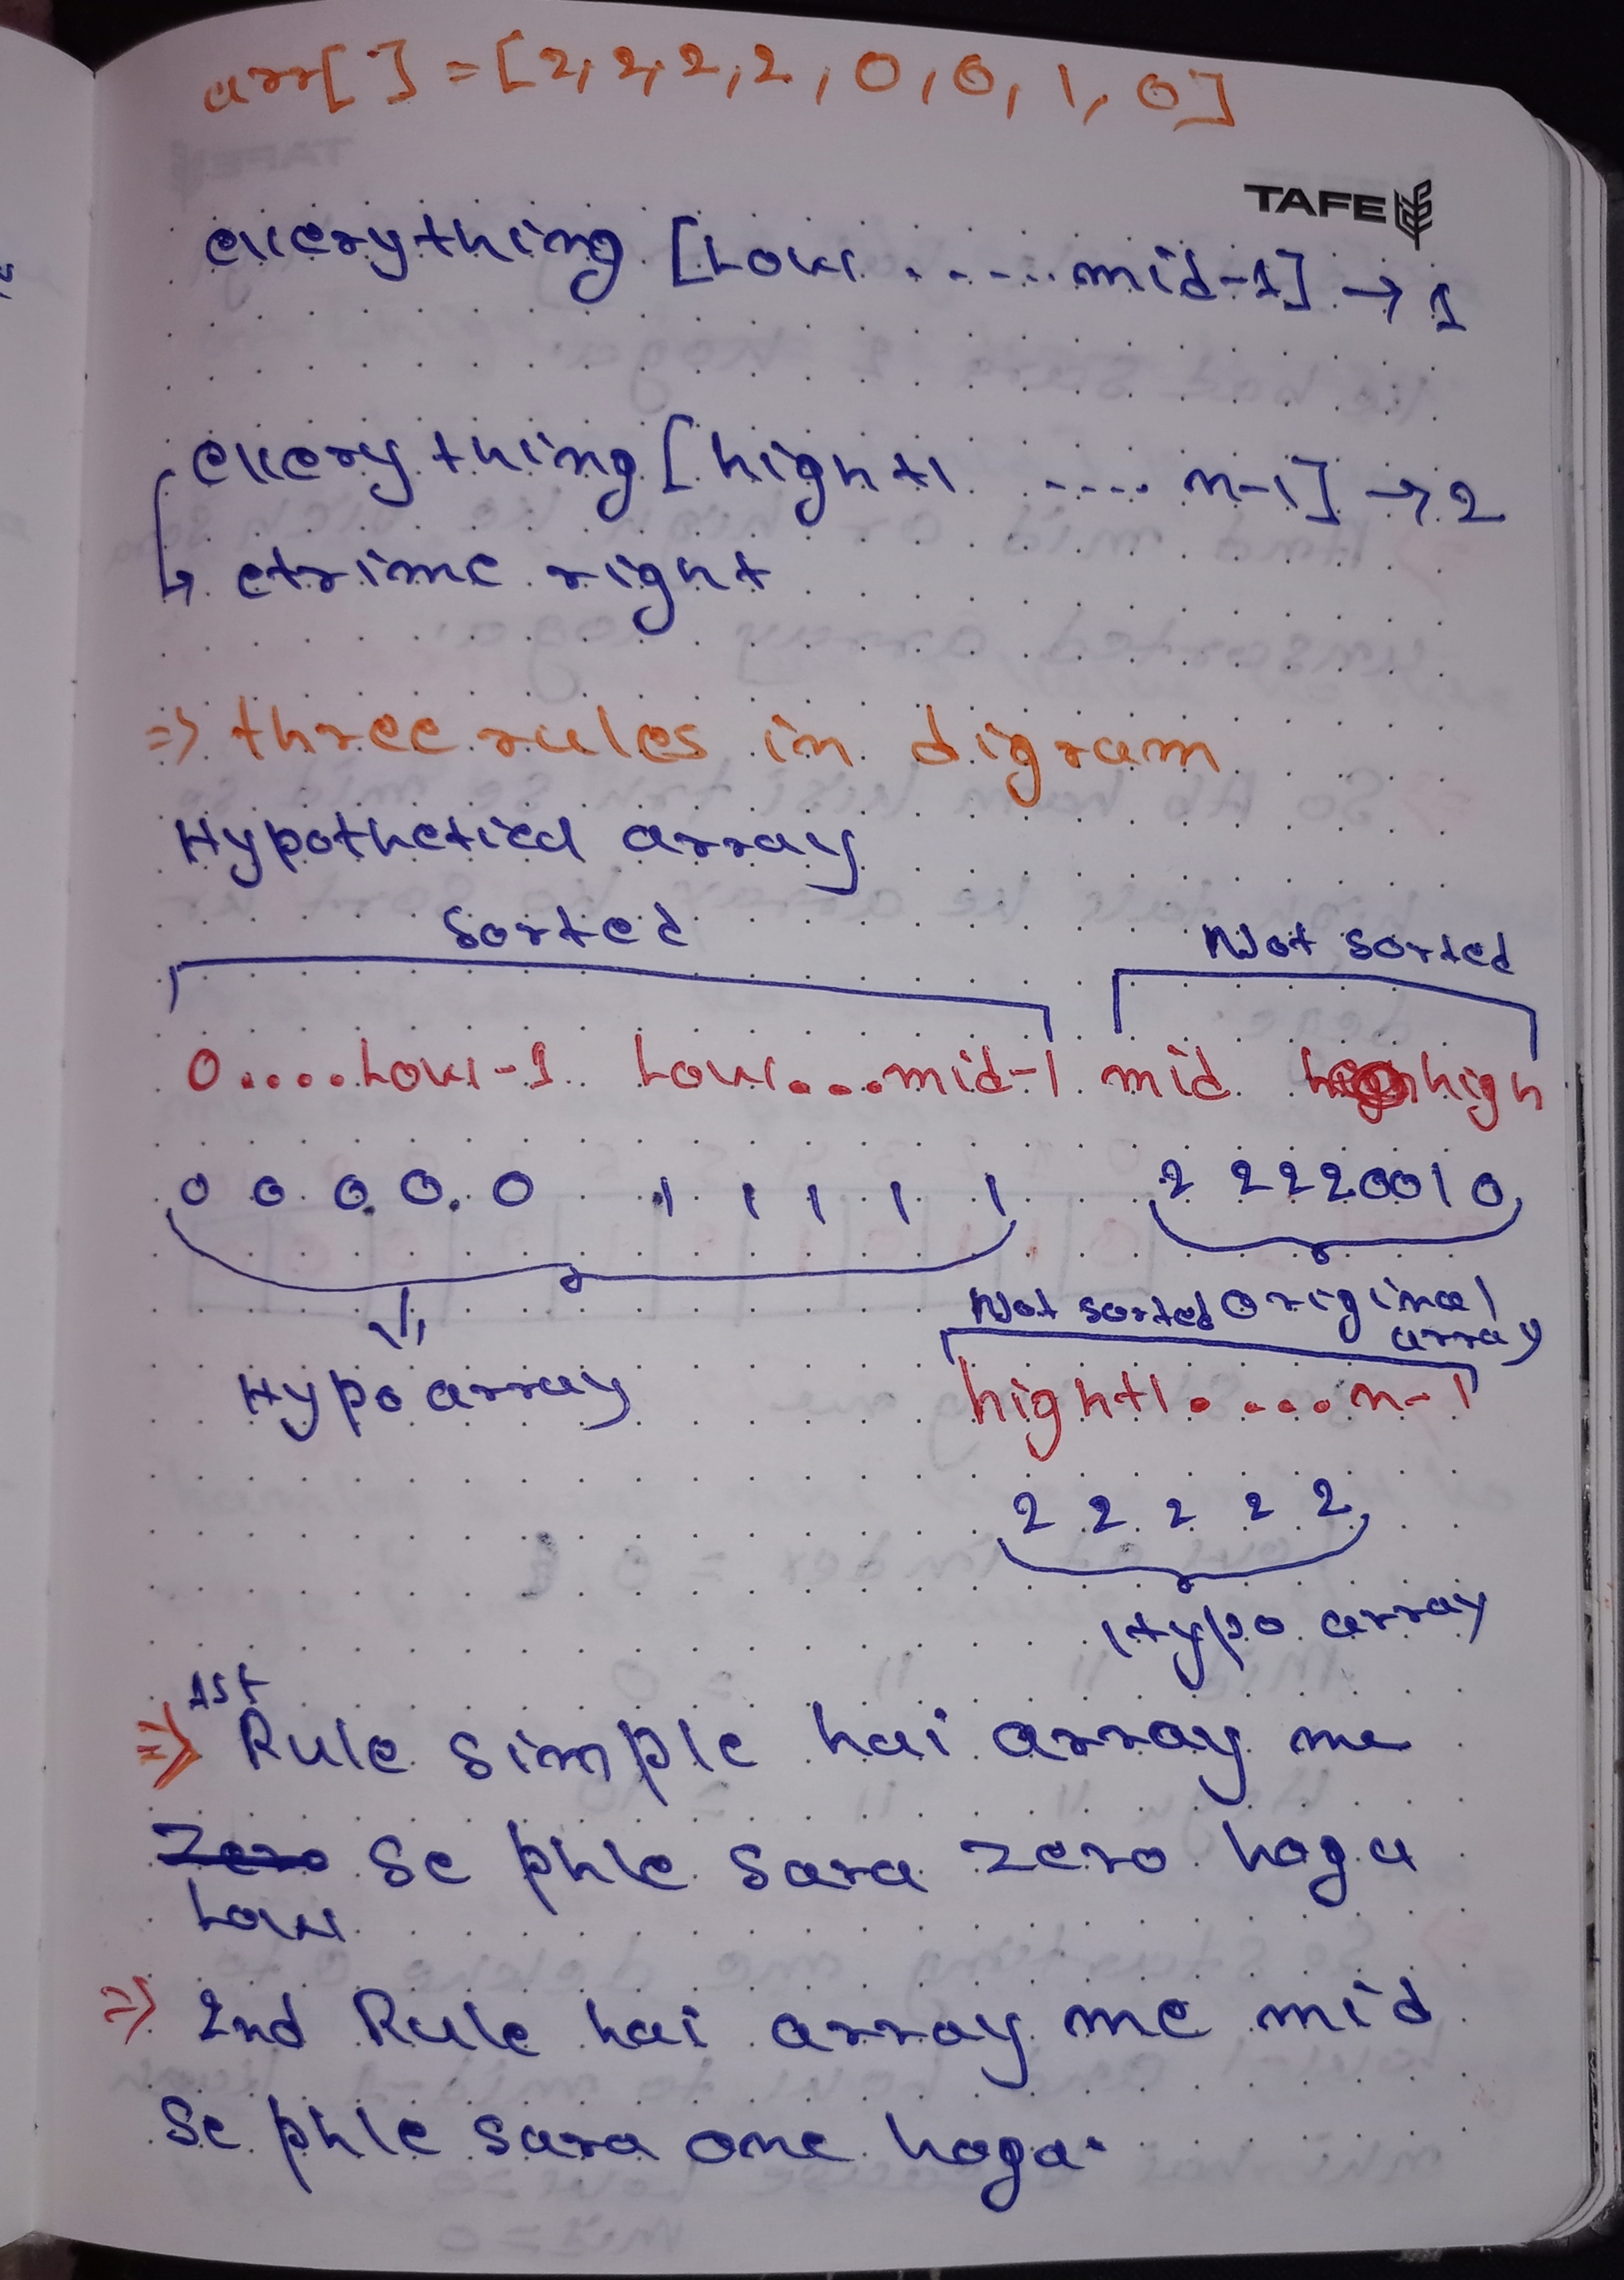 arr[ ] = [2, 2, 2, 2, 0, 0, 1, 0]
TAFE
everything [Low ...... mid-1] → 1
everything [high+1 ..... n-1] → 2
↳ etrime right
⇒ three rules in digram
Hypothetical array
Sorted Not sorted
0.....Low-1 Low....mid-1 mid high
0 0 0 0 0 1 1 1 1 1 2 2 2 2 0 0 1 0
Not sorted Original array
Hypo array high+1.....n-1
2 2 2 2 2
Hypo array
⇒ 1st Rule simple hai array me
Low se phle sara zero hoga
⇒ 2nd Rule hai array me mid
se phle sara one hoga.